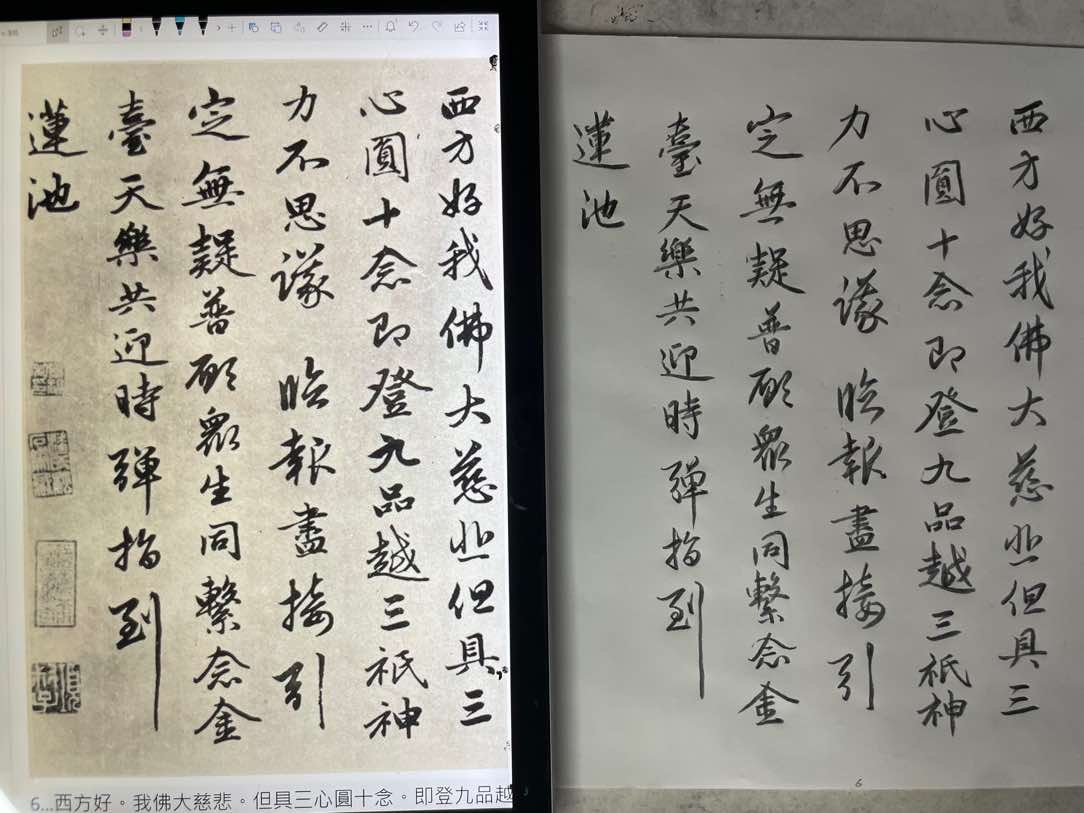 西方好我佛大慈悲但具三
心圓十念即登九品越三祇神
力不思議 臨報盡接引
定無疑普願眾生同繫念金
臺天樂共迎時彈指到
蓮池
6...西方好。我佛大慈悲。但具三心圓十念。即登九品越
西方好我佛大慈悲但具三
心圓十念即登九品越三祇神
力不思議 臨報盡接引
定無疑普願眾生同繫念金
臺天樂共迎時彈指到
蓮池
6